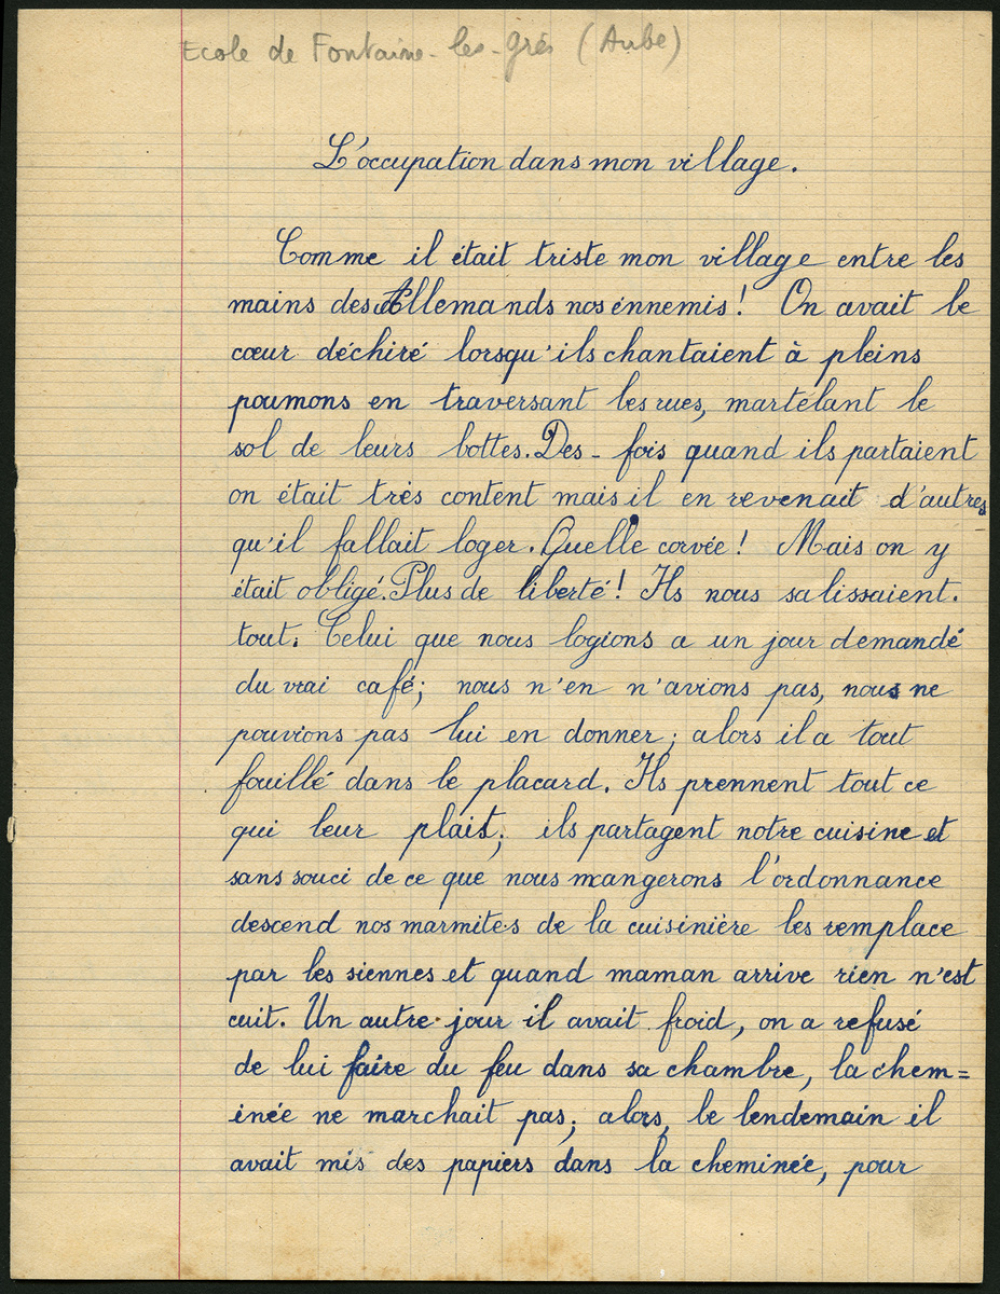 Ecole de Fontaine-les-Grés (Aube)
L'occupation dans mon village.
Comme il était triste mon village entre les
mains des Allemands nos énnemis! On avait le
cœur déchiré lorsqu'ils chantaient à pleins
poumons en traversant les rues, martelant le
sol de leurs bottes. Des-fois quand ils partaient
on était très content mais il en revenait d'autres
qu'il fallait loger. Quelle corvée! Mais on y
était obligé. Plus de liberté! Ils nous salissaient.
tout. Celui que nous logions a un jour demandé
du vrai café; nous n'en n'avions pas, nous ne
pouvions pas lui en donner; alors il a tout
fouillé dans le placard. Ils prennent tout ce
qui leur plait; ils partagent notre cuisine et
sans souci de ce que nous mangerons l'ordonnance
descend nos marmites de la cuisinière les remplace
par les siennes et quand maman arrive rien n'est
cuit. Un autre jour il avait froid, on a refusé
de lui faire du feu dans sa chambre, la chem=
inée ne marchait pas; alors, le lendemain il
avait mis des papiers dans la cheminée, pour